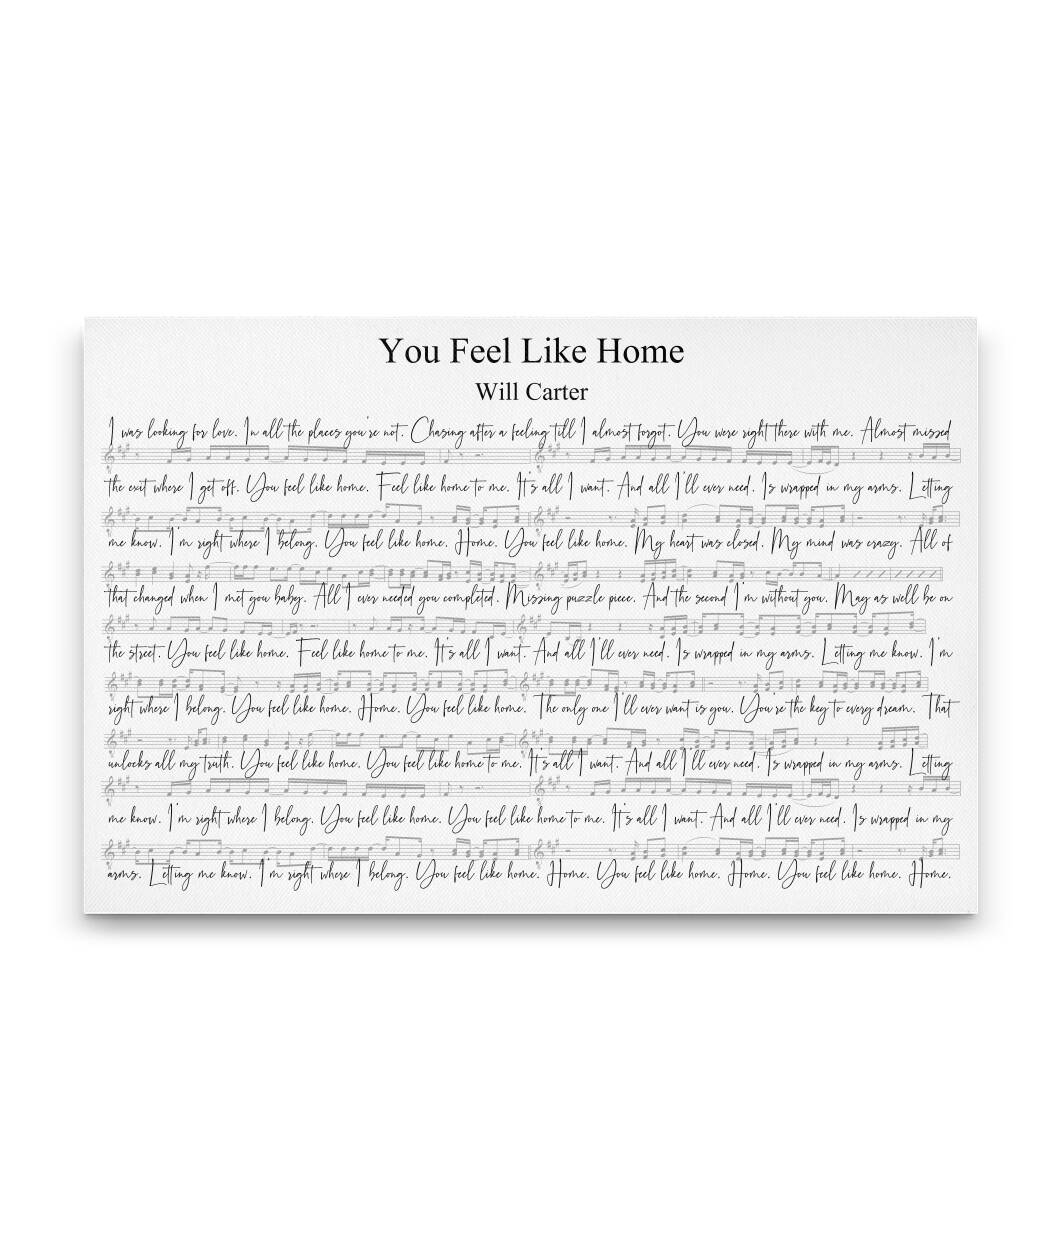 You Feel Like Home
Will Carter
I was looking for love. In all the places you're not. Chasing after a feeling till I almost forgot. You were right there with me. Almost missed
the exit where I get off. You feel like home. Feel like home to me. It's all I want. And all I'll ever need. Is wrapped in my arms. Letting
me know. I'm right where I belong. You feel like home. Home. You feel like home. My heart was closed. My mind was crazy. All of
that changed when I met you baby. All I ever needed you completed. Missing puzzle piece. And the second I'm without you. May as well be on
the street. You feel like home. Feel like home to me. It's all I want. And all I'll ever need. Is wrapped in my arms. Letting me know. I'm
right where I belong. You feel like home. Home. You feel like home. The only one I'll ever want is you. You're the key to every dream. That
unlocks all my truth. You feel like home. You feel like home to me. It's all I want. And all I'll ever need. Is wrapped in my arms. Letting
me know. I'm right where I belong. You feel like home. You feel like home to me. It's all I want. And all I'll ever need. Is wrapped in my
arms. Letting me know. I'm right where I belong. You feel like home. Home. You feel like home. Home. You feel like home. Home.